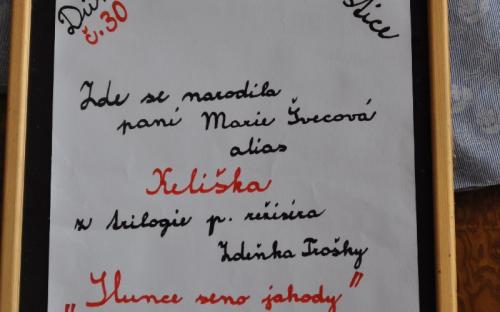 č.30
Zde se narodila
paní Marie Švecová
alias
Keliška
z trilogie p. režiséra
Zdeňka Trošky
„Slunce seno jahody"